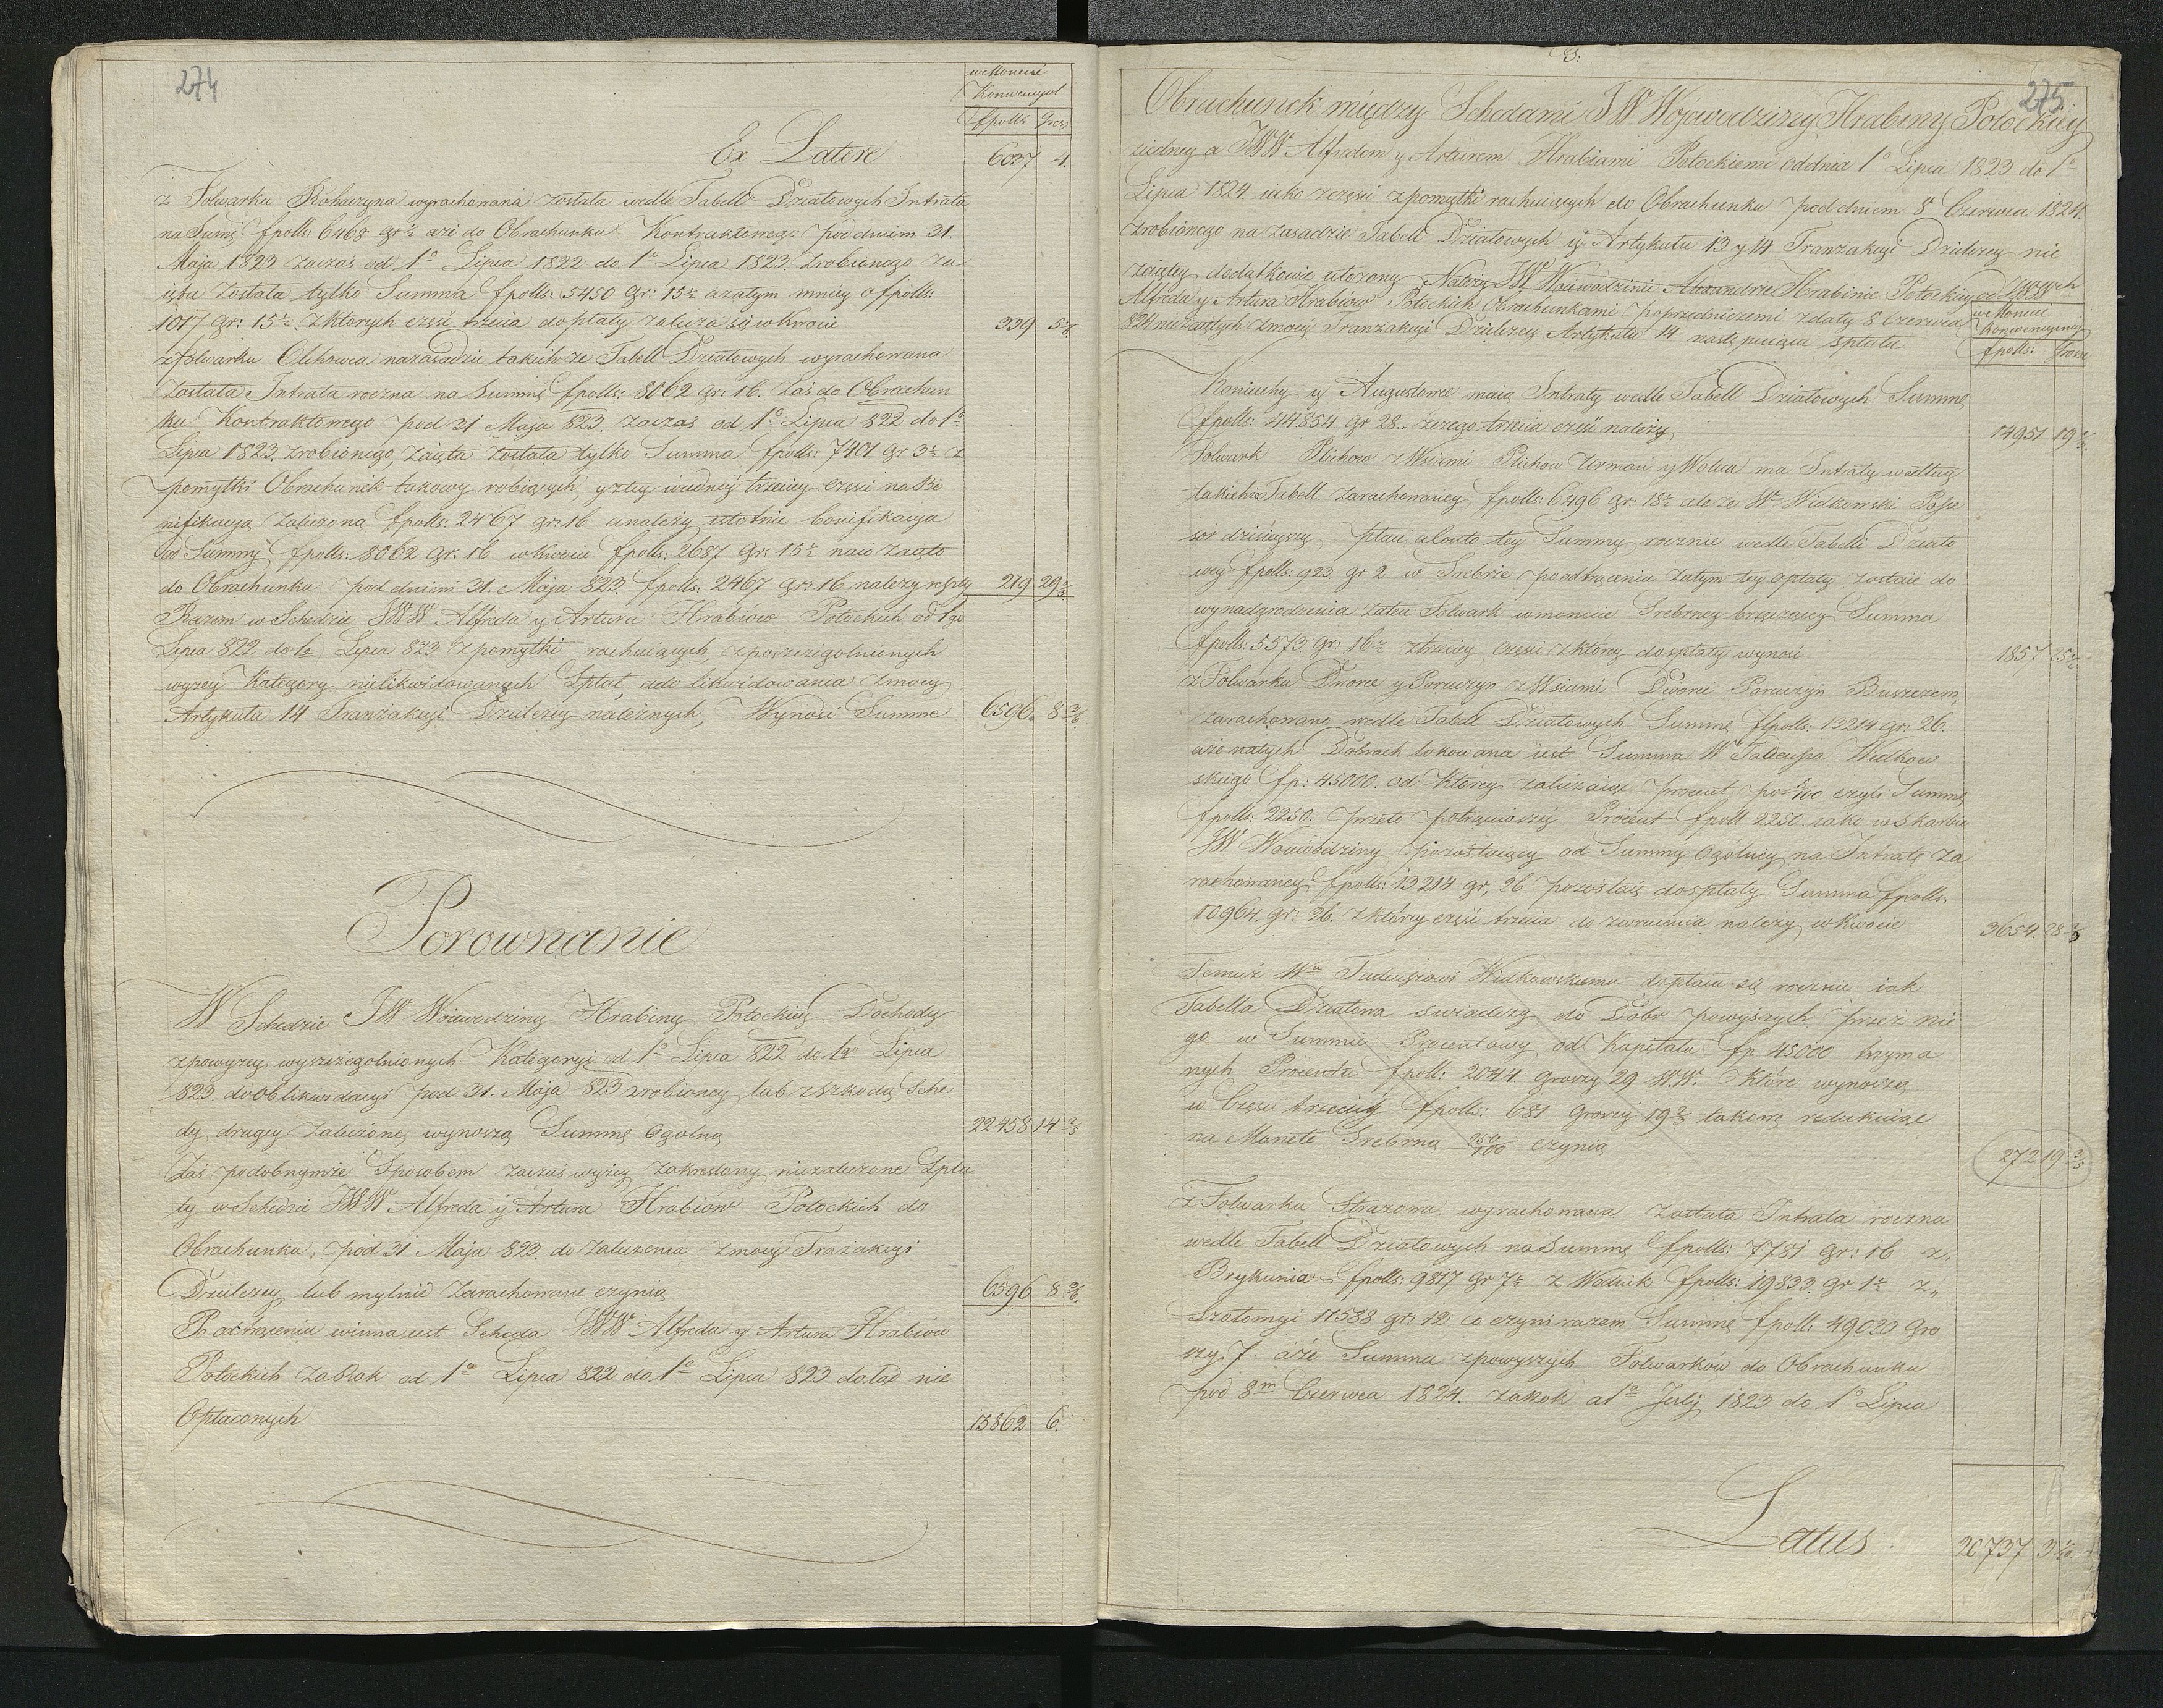 274
w Monecie
Konwencyol
fpolls Gros
Ex Latere 6037 1.
z Folwarku Rohaczyna wyrachowana została wedle Tabell Działowych Intrata
na Sumę fpolls: 6468 gr ½ aże do Obrachunku Kontraktowego pod dniem 31.
Maja 1823 zaczas od 1o Lipca 1822 do 1o Lipca 1823. zrobionego za
ięta została tylko Summa fpolls: 5450 gr: 15½ azatym mniey o fpolls:
1017 gr: 15½. z ktorych część trzecia do płaty zalicza się w kwocie 339 5
z folwarku Olchowca na zasadzie takich że Tabell Działowych wyrachowana
została Intrata roczna na Summę fpolls: 8062 gr: 16. zaś do Obrachun
ku Kontraktowego pod 31 Maja 823. zaczas od 1o Lipca 822 do 1o
Lipca 1823. zrobionego, zaięta została tylko Summa fpolls: 7401 gr 3½ z
pomyłki Obrachunek takowy robiących, y z tey iednej trzeciey części na Bo
nifikacyą zaliczoną fpolls: 2467 gr: 16 a należy istotnie bonifikacya
od Summy fpolls: 8062 gr. 16 w kwocie fpolls: 2687 gr: 15½ naco zaięto
do Obrachunku pod dniem 31. Maja 823. fpolls: 2467 gr: 16 należy reszty 219 29
Razem w Schedzie JWW Alfreda y Artura Hrabiow Potockich od 1go
Lipca 822 do 1o Lipca 823 z pomyłki rachuiących, z powszczegolnionych
wyżey Kategory nielikwidowanych Spłat, ado likwidowania z mocy
Artykułu 14 Tranzakcyi Działczey należnych, Wynosi Summę 6596 8
Porownanie
W Schedzie JW Woiewodziny Hrabiny Potockiey Dochody
z powyżey wyszczegolnionych Kategoryi od 1o Lipca 822 do 1go Lipca
823. do Oblikwidacyi pod 31. Maja 823 zrobioney lub z szkodą Sche
dy drugiey zaliczone, wynoszą Summę Ogolną 22458 14
Zaś podobnymże Sposobem zaczas wyżey zakreslony niezaliczone Spła
ty w Schedzie JWW Alfreda y Artura Hrabiów Potockich do
Obrachunku, pod 31 Maja 823. do zaliczenia z mocy Trazakcyi
Działczey lub mylnie zarachowane czynią 6596 8
Potrąceniu winna iest Scheda JWW Alfreda y Artura Hrabiow
Potockich za Rok od 1o Lipca 822 do 1o Lipca 823 dotąd nie
Opłaconych 15862 6.
275
Obrachunek między Schedami JW Wojewodziny Hrabiny Potockiey
iedney a JWW Alfredem y Arturem Hrabiami Potockiemi od dnia 1o Lipca 1823 do 1o
Lipca 1824 iako z części z pomyłki rachuiących do Obrachunku pod dniem 8 Czerwca 1824.
zrobionego na zasadzie Tabell Działowych y Artykułu 13 y 14 Tranzakcyi Działczey nie
zaiętey dodatkowie ułożony. Należy JW Woiewodzinie Alexandrze Hrabinie Potockiey od JWWch
Alfreda y Artura Hrabiów Potockich Obrachunkami poprzedniczemi z daty 8 Czerwca
824 niezaiętych z mocy Tranzakcyi Działczey Artykułu 14 następuiąca spłata
w Monecie
Konwencyiney
fpolls: Grosze
Koniuchy y Augustowce maią Intraty wedle Tabell Działowych Summę
fpolls: 44854 gr 28. z czego trzecia część należy 14951 19
Folwark Plichow z Wsiami Plichow Urman y Wolica ma Intraty według
takichże Tabell zarachowaney fpolls: 6496 gr: 18½ ale że Wny Widkowski Posse
sor dzisieyszy płaci a Conto tey Summy rocznie wedle Tabelli Działo
wey fpolls: 923. gr 2 w Srebrze po odtrąceniu zatym tey opłaty zostaie do
wynadgrodzenia zaten Folwark w monecie Srebrney brzęczącey Summa
fpolls: 5573. gr: 16½ z trzeciey części z ktorey do spłaty wynosi 1857 25
z Folwarku Dworce y Poruczyn z Wsiami Dworce Poruczyn Buszczem,
zarachowano wedle Tabell Działowych Summę fpolls: 13214 gr: 26.
aże na tych Dobrach lokowana iest Summa Wo Tadeusza Widkow
skiego fp: 45000. od Ktorey zaliczaiąc procent po 5/100 czyli Summę
fpolls: 2250. przeto potrąciwszy Procent fpoll 2250. iako w Skarbie
JW Woiewodziny pozostaiący od Summy Ogolney na Intratę za
rachowaney fpolls: 13214 gr, 26 pozostaie do spłaty Summa fpolls.
10964. gr: 26. z ktorey część trzecia do zwrocenia należy w kwocie 3654 28
Temuż Wu Tadeuszowi Widkowskiemu dopłaca się rocznie iak
Tabella Działowa swiadczy do Dobr powyższych przez nie
go w Summie Procentowy od Kapitału fp 45000 trzyma
nych Procenta fpoll: 2044 groszy 29 W.W. Które wynoszą
w Częsci trzeciey fpolls: 681 groszy 19⅔ takowe redukuiąc
na Monetę Srebrną 250/100 czynią 272 19
z Folwarku Hrazowa wyrachowana została Intrata roczna
wedle Tabell Działowych na Summę fpolls: 7781 gr: 16 z,
Brykunia fpolls: 9817 gr 7½ z Wodnik fpolls: 19833. gr 1½ z,,
Szołomyi 11588 gr: 12 co czyni razem Summę fpoll: 49020 gro
szy 7 aże Summa z powyższych Folwarków do Obrachunku
pod 8m Czerwca 1824. za Rok a 1a July 1823 do 1o Lipca
Latus 20737 3